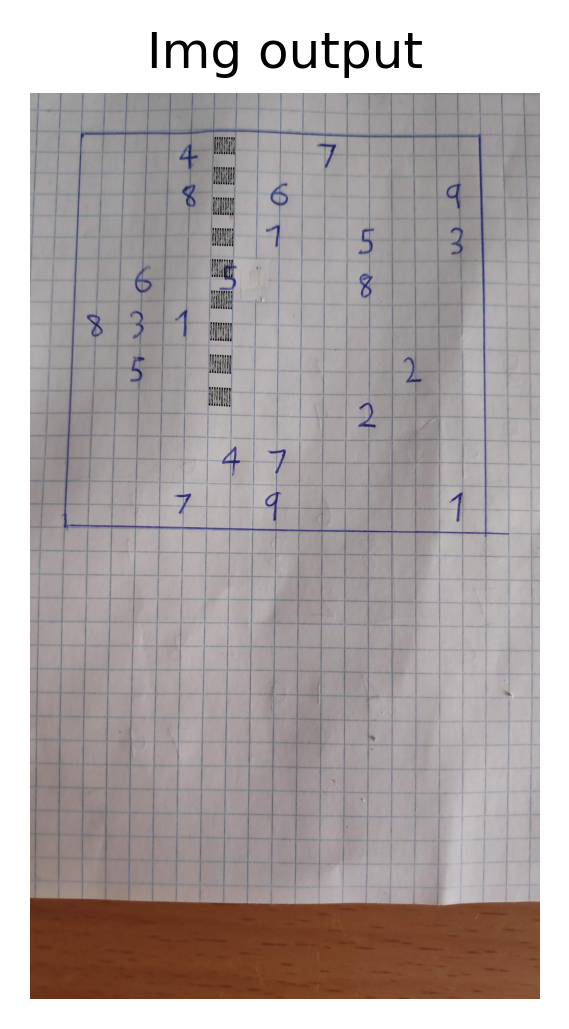 Img output
4 7
8 6 9
1 5 3
6 5 8
8 3 1
5 2
2
4 7
7 9 1